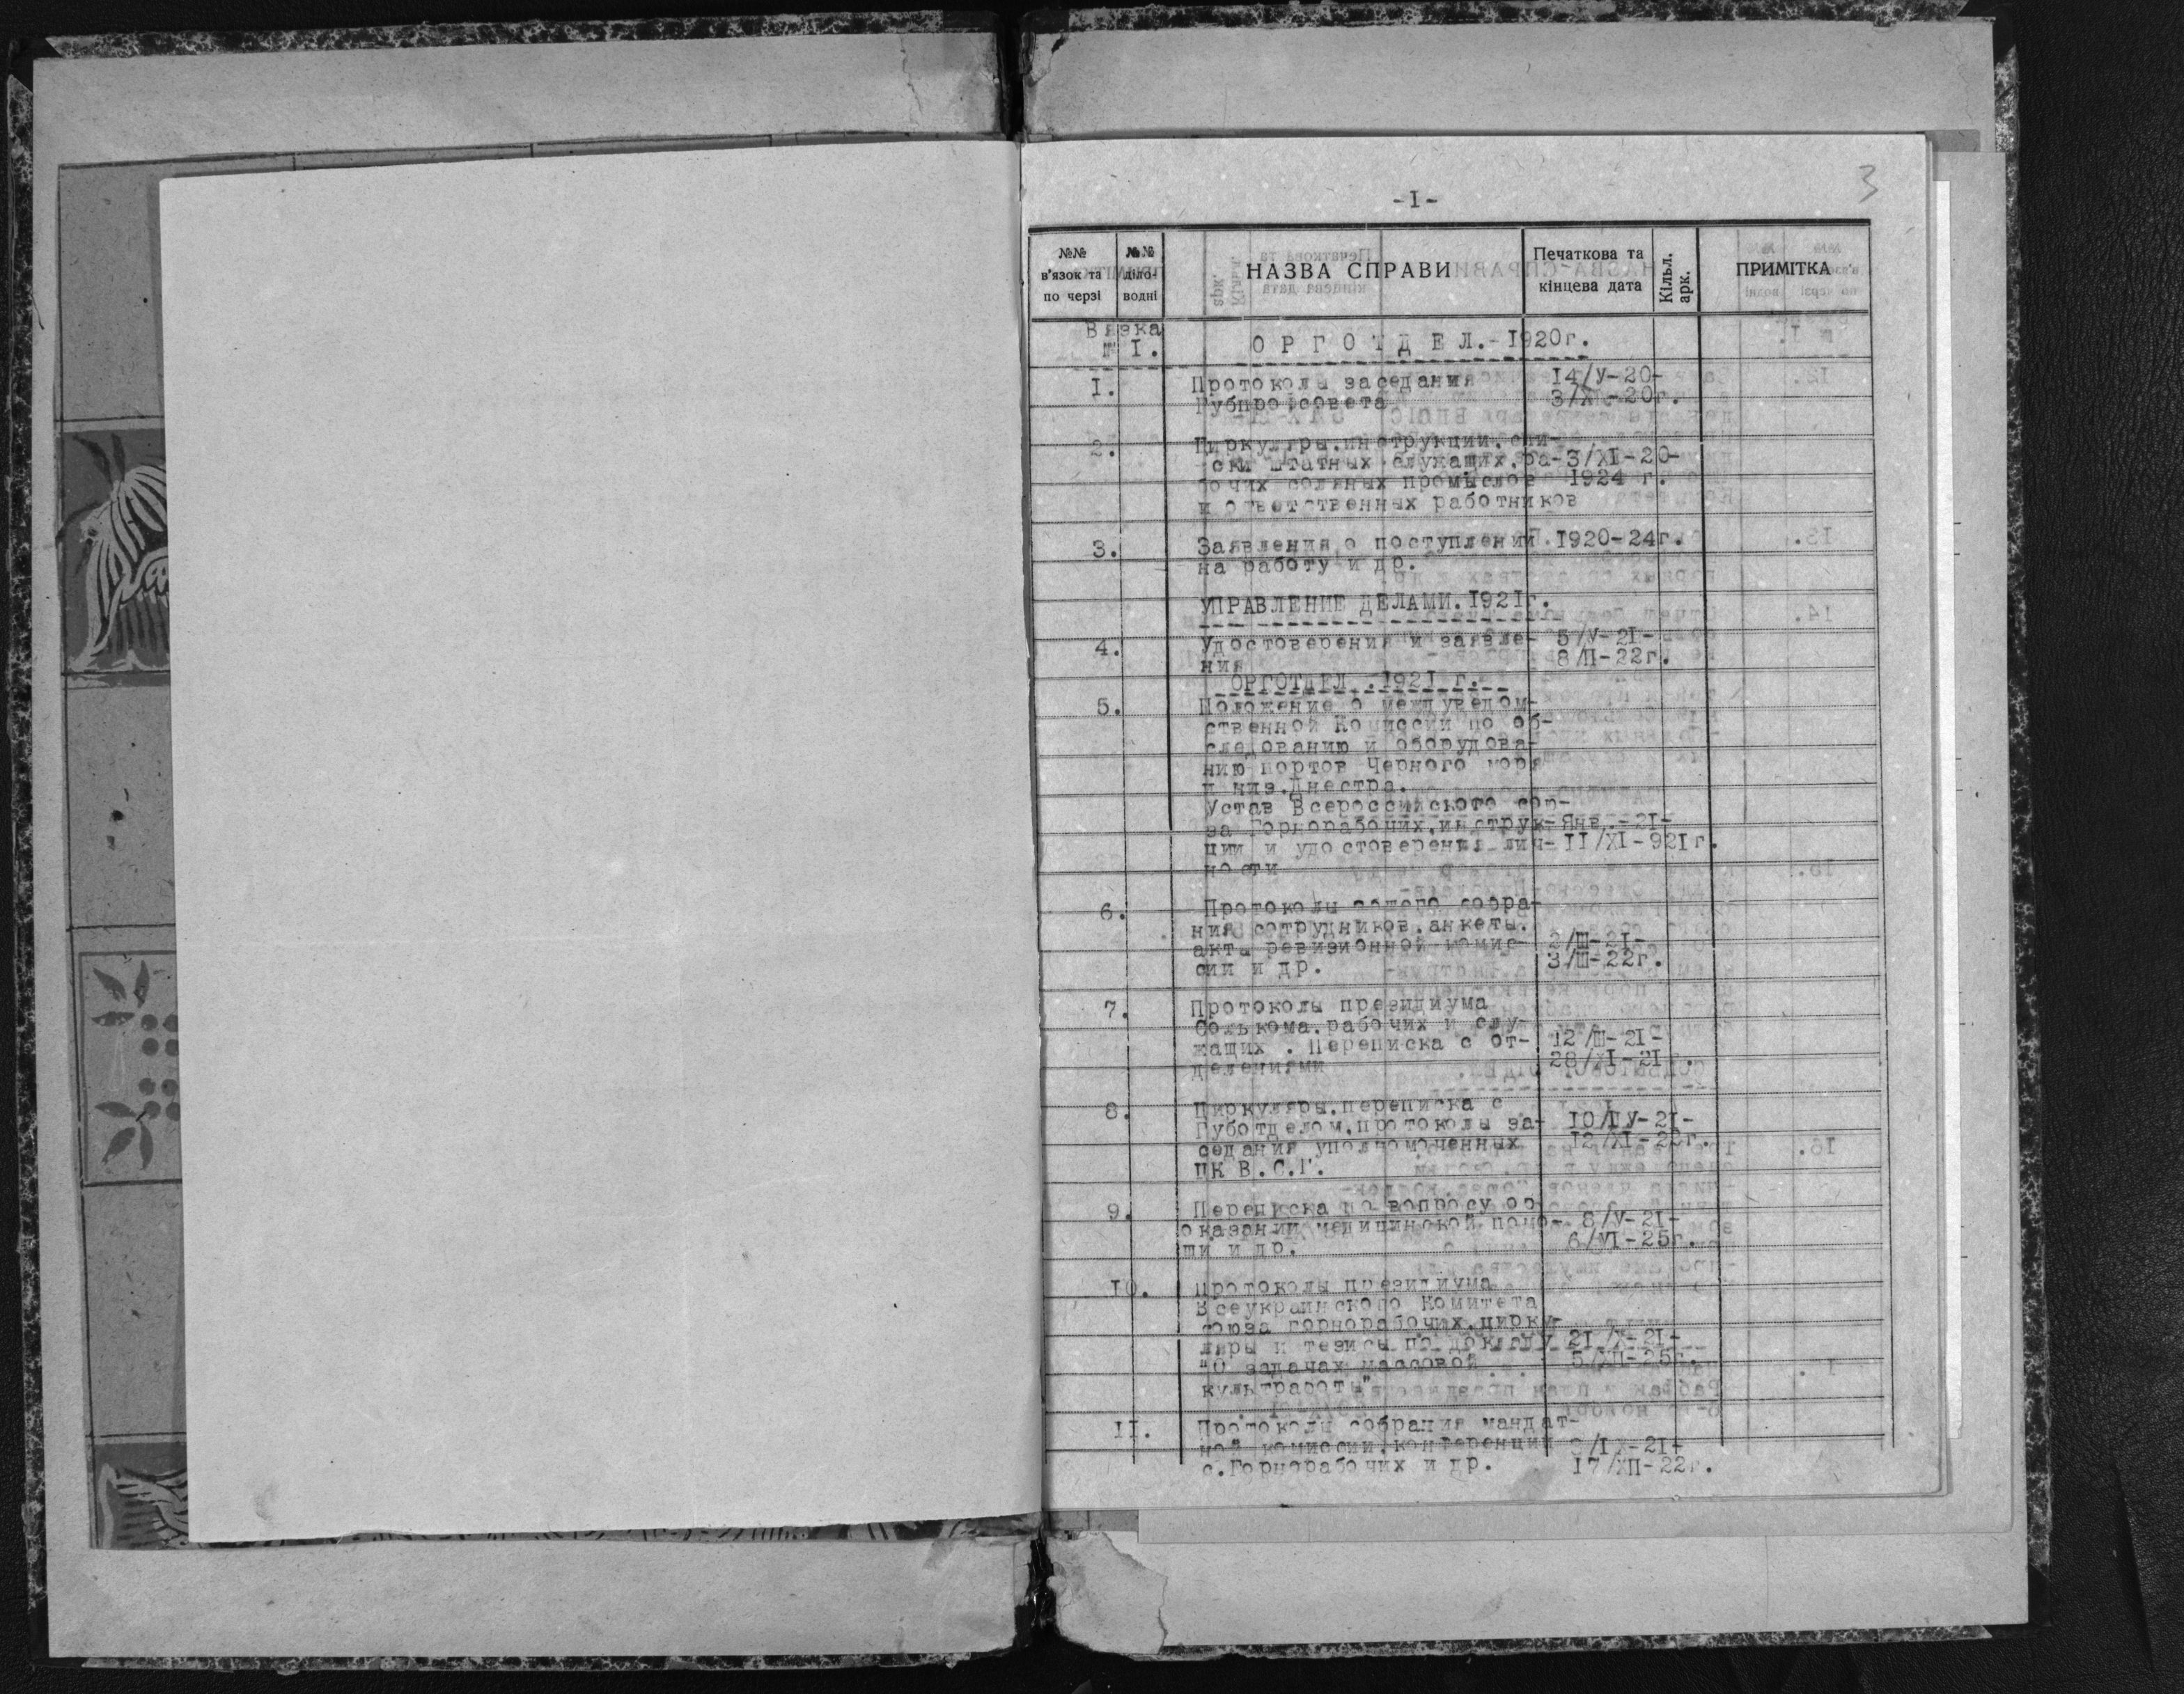 3
-I-
№№ в'язок та по черзі | №№ діло-водні | НАЗВА СПРАВИ | Печаткова та кінцева дата | Кільк. арк. | ПРИМІТКА
Вязка
№ I. О Р Г О Т Д Е Л.-I920г.
I. Протоколы заседания I4/У-20-
Губпрофсовета 3/XI-20г.
2. Циркуляры,инструкции,спи-
ски штатных служащих,ра- 3/XI-20-
бочих соляных промыслов 1924 г.
и ответственных работников
3. Заявления о поступлении I920-24г.
на работу и др.
УПРАВЛЕНИЕ ДЕЛАМИ.I92Iг.
4. Удостоверения и заявле- 5/У-2I-
ния 8/П-22г.
ОРГОТДЕЛ .I92I г.
5. Положение о междуведом-
ственной Комиссии по об-
следованию и оборудова-
нию портов Черного моря
и низ.Днестра.
Устав Всероссийского сою-
за Горнорабочих,инструк- Янв.-2I-
ции и удостоверения лич- II/XI-92Iг.
ности
6. Протоколы общего собра-
ния сотрудников,анкеты,
акты ревизионной комис- 2/Ш-2I-
сии и др. 3/Ш-22г.
7. Протоколы президиума
Солькома,рабочих и слу-
жащих . Переписка с от- I2/Ш-2I-
делениями 28/XI-2Iг.
8. Циркуляры,переписка с
Губотделом,протоколы за- I0/IУ-2I-
седания уполномоченных I2/XI-22г.
ЦК В.С.Г.
9. Переписка по вопросу об
оказании медицинской помо- 8/У-2I-
щи и др. 6/УI-25г.
I0. Протоколы президиума
Всеукраинского Комитета
союза горнорабочих,цирку-
ляры и тезисы по докладу 2I/X-2I-
"О задачах массовой 5/ХП-25г.
культработы"
II. Протоколы собрания мандат-
ной комиссии,конференции /IX-2I-
с.Горнорабочих и др. I7/ХП-22г.